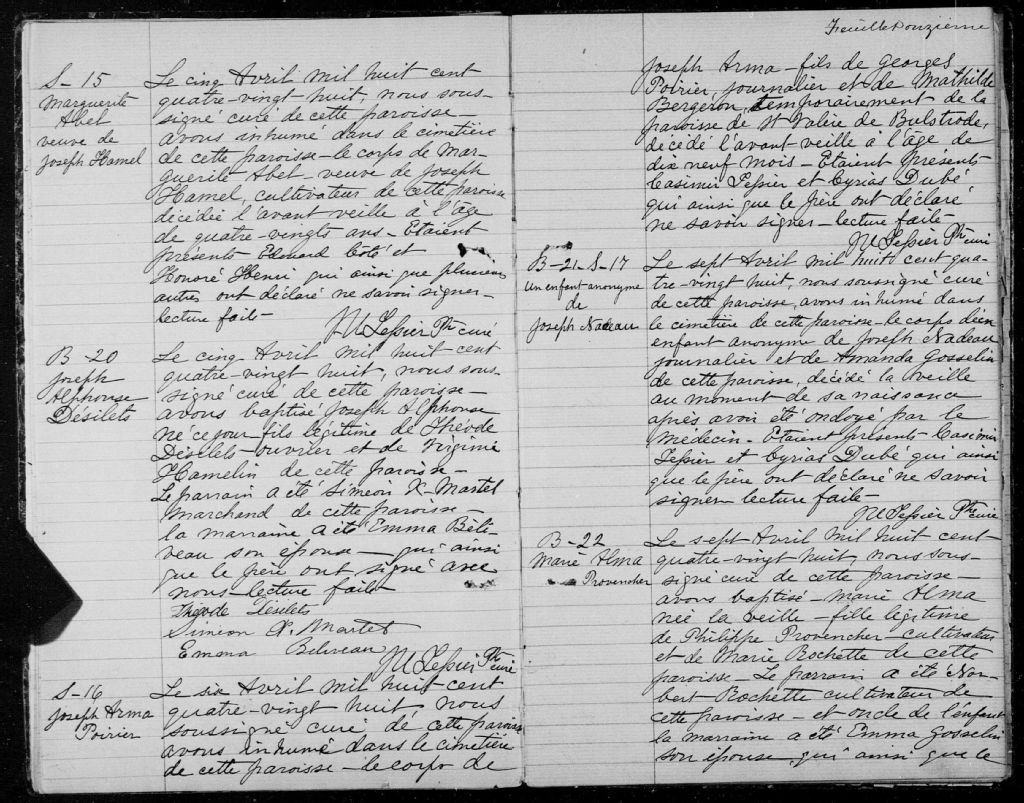 S-15
Marguerite
Abet
veuve de
Joseph Hamel
Le cinq Avril mil huit cent
quatre-vingt huit, nous sous-
signé curé de cette paroisse-
avons inhumé dans le cimetière
de cette paroisse-le corps de Mar-
guerite Abet-veuve de Joseph
Hamel, cultivateur de cette paroisse
décédée l'avant veille à l'âge
de quatre-vingts ans-Etaient
présents Edouard Coté et
Honoré Henri qui ainsi que plusieurs
autres ont déclaré ne savoir signer-
lecture faite-
JU Tessier Ptre curé
B-20
Joseph
Alphonse
Désilets
Le cinq Avril mil huit cent
quatre-vingt huit, nous sous-
signé curé de cette paroisse-
avons baptisé Joseph Alphonse
né ce jour-fils légitime de Théode
Désilets-ouvrier et de Virginie
Hamelin de cette paroisse-
Le parrain a été Siméon X-Martel
marchand de cette paroisse-
la marraine a été Emma Béli-
veau son épouse-qui ainsi
que le père ont signé avec
nous-lecture faite-
Théode Désilets
Siméon X. Martel
Emma Béliveau
JU Tessier Ptre curé
S-16
Joseph Arma
Poirier
Le six Avril mil huit-cent
quatre-vingt huit, nous
soussigné curé de cette paroisse
avons inhumé dans le cimetière
de cette paroisse-le corps de
Feuillet onzième
Joseph Arma-fils de Georges
Poirier, journalier et de Mathilde
Bergeron, temporairement de la
paroisse de St Valère de Bulstrode,
décédé l'avant veille à l'âge de
dix neuf mois-Etaient présents
Casimir Tessier et Cyrias Dubé
qui ainsi que le père ont déclaré
ne savoir signer-lecture faite-
JU Tessier Ptre curé
B-21-S-17
Un enfant anonyme
de
Joseph Nadeau
Le sept Avril mil huit cent qua-
tre-vingt huit, nous soussigné curé
de cette paroisse, avons inhumé dans
le cimetière de cette paroisse-le corps d'un
enfant anonyme de Joseph Nadeau
journalier et de Amanda Gosselin
de cette paroisse, décédé la veille
au moment de sa naissance
après avoir été ondoyé par le
médecin-Etaient présents-Casimir
Tessier et Cyrias Dubé qui ainsi
que le père ont déclaré ne savoir
signer-lecture faite-
JU Tessier Ptre curé
B-22
Marie Alma
Provencher
Le sept Avril mil huit cent
quatre-vingt huit, nous sous-
signé curé de cette paroisse-
avons baptisé-Marie Alma
née la veille-fille légitime
de Philippe Provencher-cultivateur
et de Marie Rochette de cette
paroisse-Le parrain a été Nor-
bert Rochette cultivateur de
cette paroisse-et oncle de l'enfant
la marraine a été Emma Gosselin
son épouse, qui ainsi que le